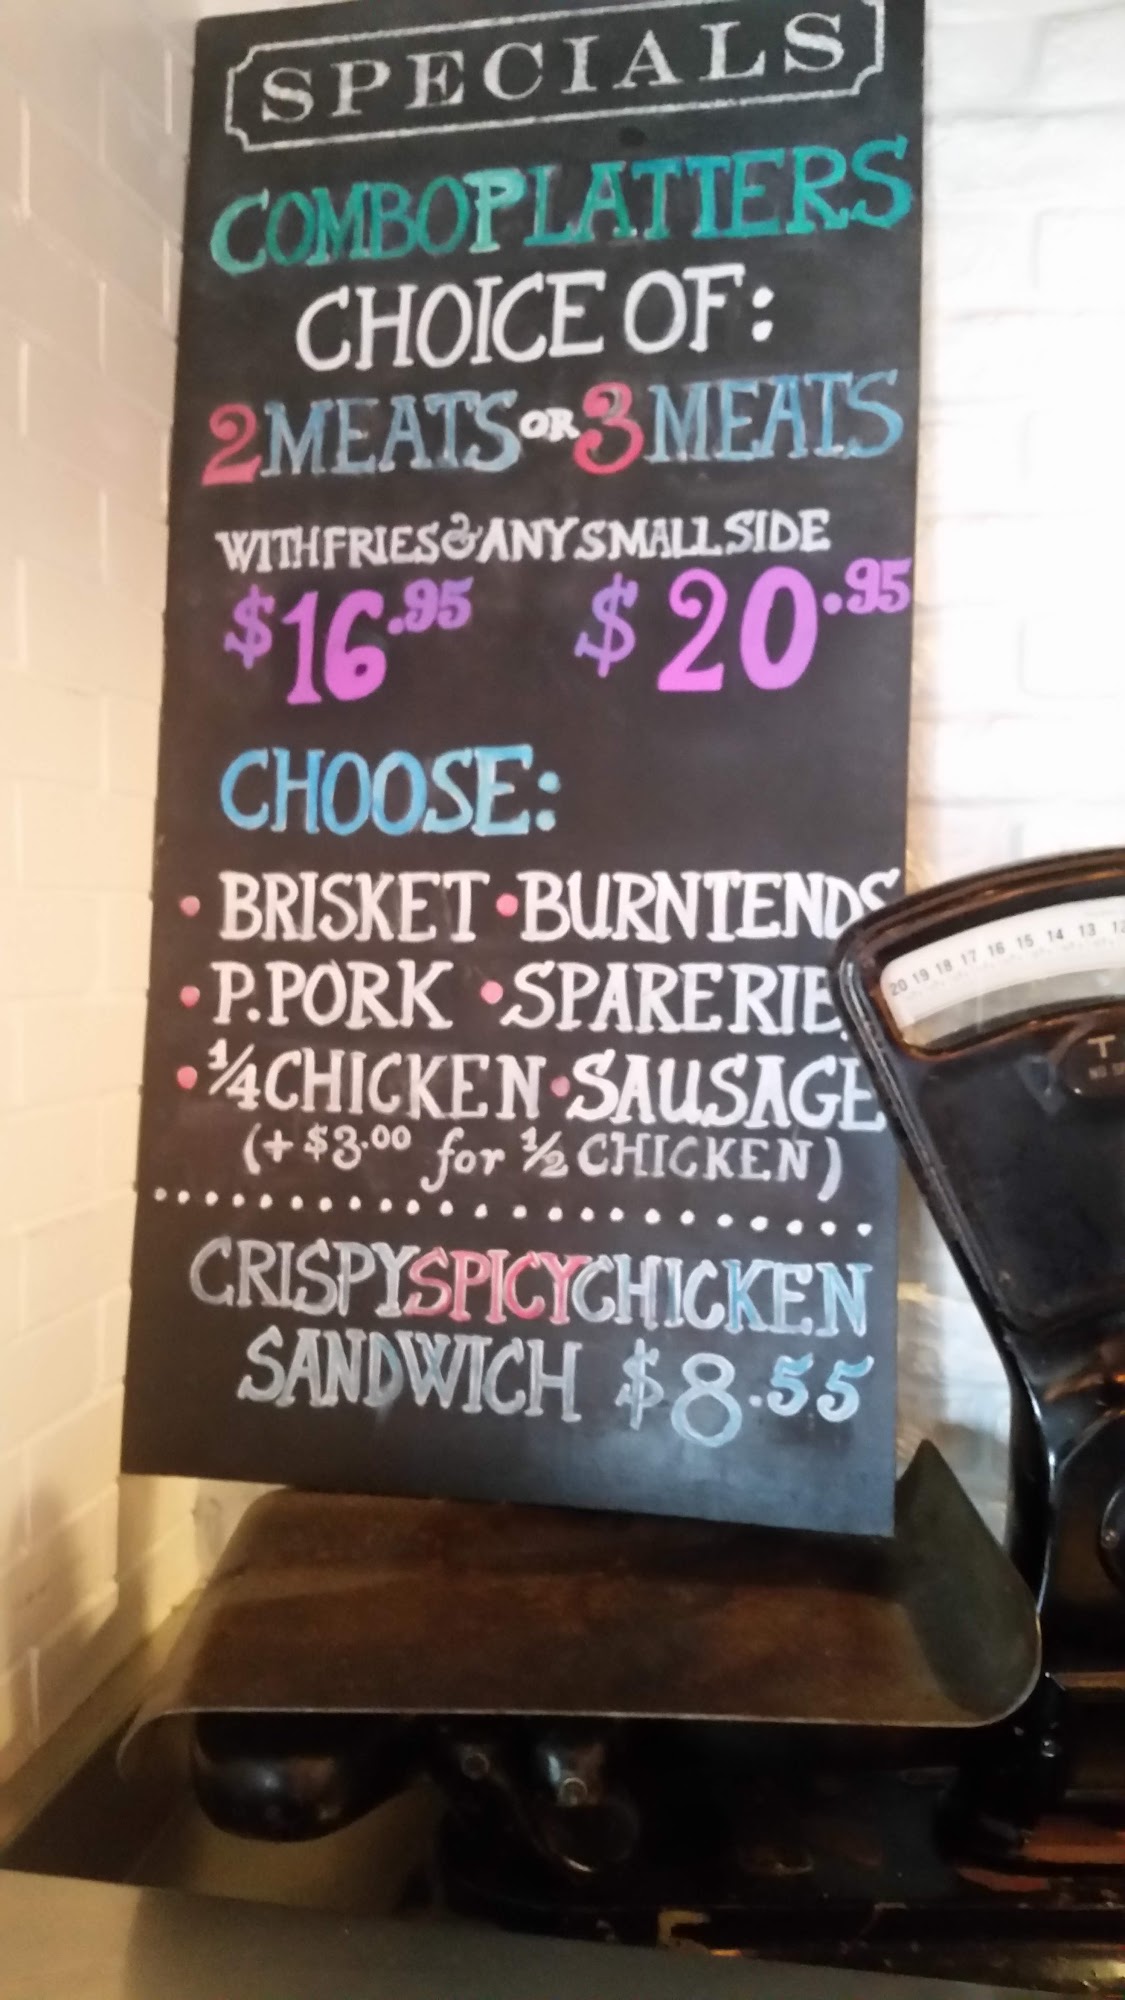 SPECIALS
COMBO PLATTERS
CHOICE OF:
2 MEATS OR 3 MEATS
WITH FRIES & ANY SMALL SIDE
$16.95 $20.95
CHOOSE:
• BRISKET • BURNT ENDS
• P.PORK • SPARE RIB
• 1/4 CHICKEN • SAUSAGE
(+ $3.00 for 1/2 CHICKEN)
CRISPY SPICY CHICKEN
SANDWICH $8.55
20 19 18 17 16 15 14 13 12